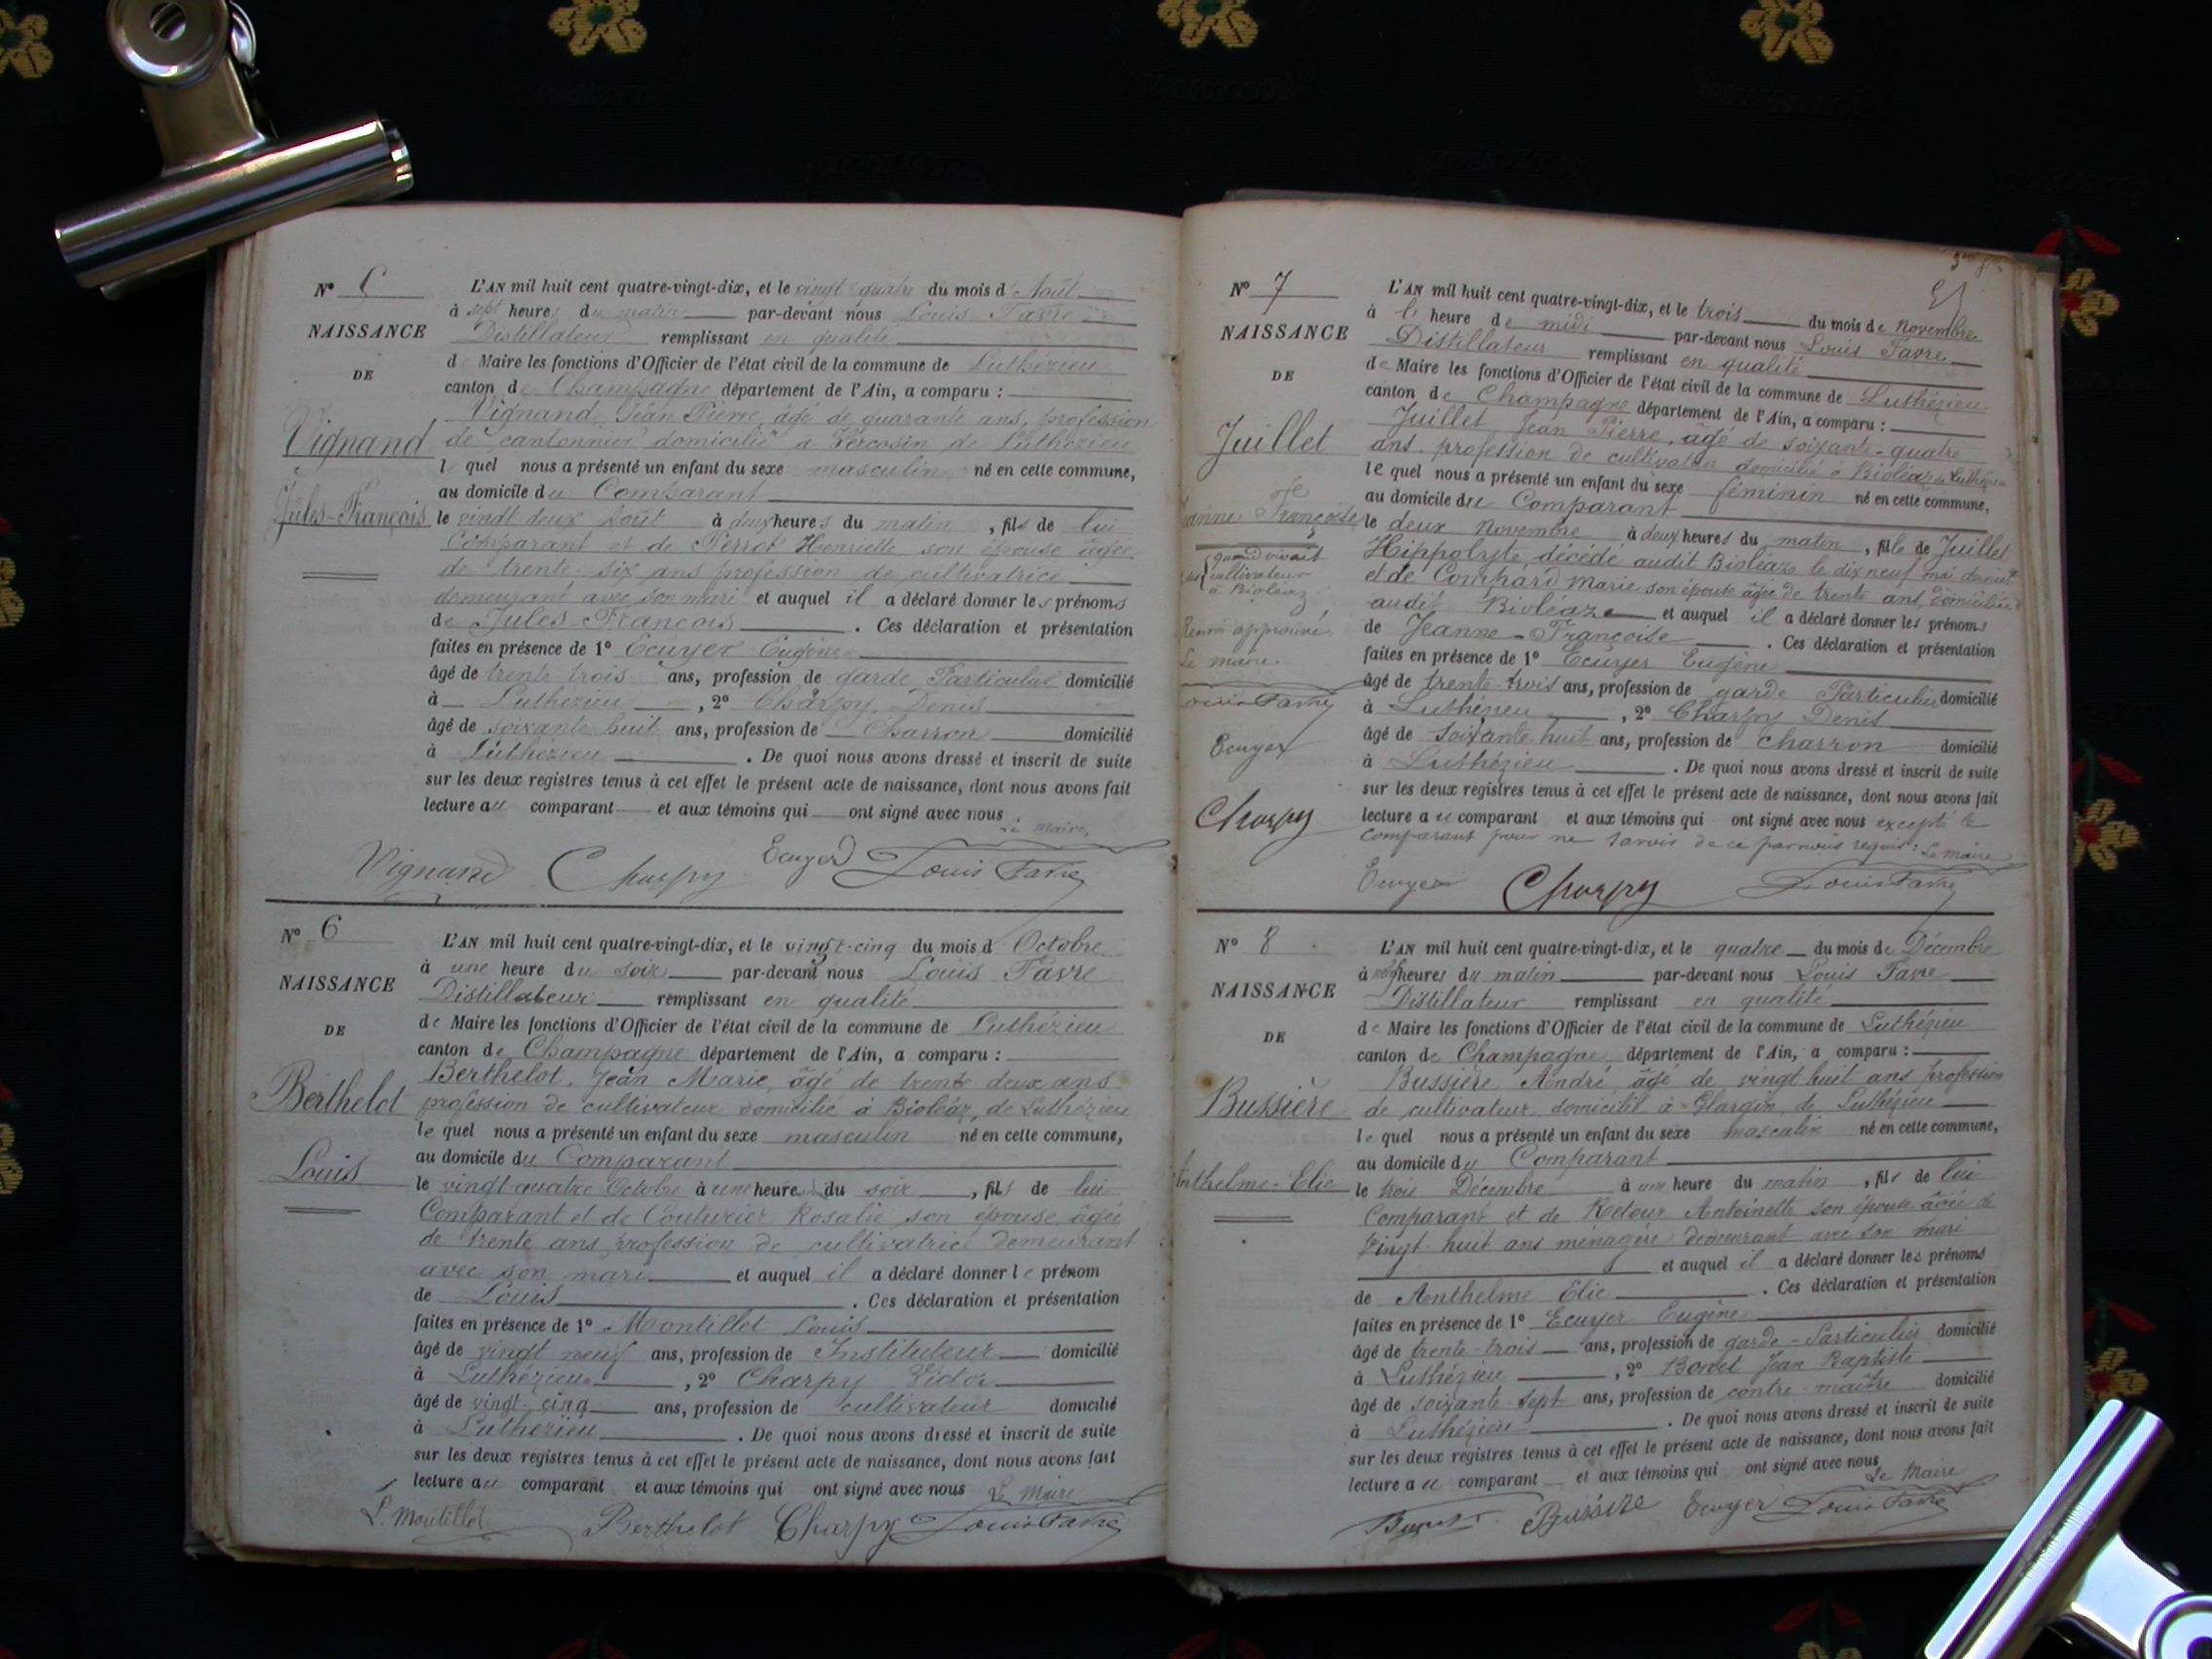 N° 5
NAISSANCE
DE
Vignand
Jules-François
L'AN mil huit cent quatre-vingt-dix, et le vingt quatre du mois d'Août
à sept heures du matin par-devant nous Louis Favre
Distillateur remplissant en qualité
de Maire les fonctions d'Officier de l'état civil de la commune de Luthézieu
canton de Champagne département de l'Ain, a comparu :
Vignand, Jean Pierre, âgé de quarante ans, profession
de cantonnier domicilié à de Luthézieu
lequel nous a présenté un enfant du sexe masculin né en cette commune,
au domicile du Comparant
le vingt deux Août à deux heures du matin, fils de lui
comparant et de Perrot Henriette son épouse âgée
de trente-six ans profession de cultivatrice
demeurant avec son mari et auquel il a déclaré donner les prénoms
de Jules-François. Ces déclaration et présentation
faites en présence de 1° Ecuyer Eugène
âgé de trente trois ans, profession de garde Particulier domicilié
à Luthézieu, 2° Charpy Denis
âgé de soixante huit ans, profession de Charron domicilié
à Luthézieu. De quoi nous avons dressé et inscrit de suite
sur les deux registres tenus à cet effet le présent acte de naissance, dont nous avons fait
lecture au comparant et aux témoins qui ont signé avec nous
Le maire,
Vignand Charpy Ecuyer Louis Favre
N° 6
NAISSANCE
DE
Berthelot
Louis
L'AN mil huit cent quatre-vingt-dix, et le vingt-cinq du mois d'Octobre
à une heure du soir par-devant nous Louis Favre
Distillateur remplissant en qualité
de Maire les fonctions d'Officier de l'état civil de la commune de Luthézieu
canton de Champagne département de l'Ain, a comparu :
Berthelot, Jean Marie, âgé de trente deux ans
profession de cultivateur domicilié à Bioléaz, de Luthézieu
lequel nous a présenté un enfant du sexe masculin né en cette commune,
au domicile du Comparant
le vingt quatre Octobre à une heure du soir, fils de lui
Comparant et de Couturier Rosalie son épouse âgée
de trente ans profession de cultivatrice demeurant
avec son mari et auquel il a déclaré donner le prénom
de Louis. Ces déclaration et présentation
faites en présence de 1° Montillet Louis
âgé de vingt neuf ans, profession de Instituteur domicilié
à Luthézieu, 2° Charpy Victor
âgé de vingt-cinq ans, profession de cultivateur domicilié
à Luthézieu. De quoi nous avons dressé et inscrit de suite
sur les deux registres tenus à cet effet le présent acte de naissance, dont nous avons fait
lecture au comparant et aux témoins qui ont signé avec nous Le Maire
L. Montillet Berthelot Charpy Louis Favre
N° 7
NAISSANCE
DE
Juillet
Jeanne Françoise
quand vivait
cultivateur
à Bioléaz
Renvoi approuvé
Le maire
Louis Favre
Ecuyer
Charpy
L'AN mil huit cent quatre-vingt-dix, et le trois du mois de novembre
à heure de midi par-devant nous Louis Favre
Distillateur remplissant en qualité
de Maire les fonctions d'Officier de l'état civil de la commune de Luthézieu
canton de Champagne département de l'Ain, a comparu :
Juillet, Jean Pierre, âgé de soixante-quatre
ans, profession de cultivateur domicilié à Bioléaz de Luthézieu
lequel nous a présenté un enfant du sexe féminin né en cette commune,
au domicile du Comparant
le deux Novembre à deux heures du matin, fille de Juillet
Hippolyte, décédé audit Bioléaze le dix neuf mai
et de Marie son épouse âgée de trente ans, domiciliée
audit Bioléaze et auquel il a déclaré donner les prénoms
de Jeanne-Françoise. Ces déclaration et présentation
faites en présence de 1° Ecuyer Eugène
âgé de trente-trois ans, profession de garde Particulier domicilié
à Luthézieu, 2° Charpy Denis
âgé de soixante-huit ans, profession de charron domicilié
à Luthézieu. De quoi nous avons dressé et inscrit de suite
sur les deux registres tenus à cet effet le présent acte de naissance, dont nous avons fait
lecture au comparant et aux témoins qui ont signé avec nous excepté le
comparant pour ne savoir de ce par nous requis. Le maire
Ecuyer Charpy Louis Favre
N° 8
NAISSANCE
DE
Bussière
Anthelme-Elie
L'AN mil huit cent quatre-vingt-dix, et le quatre du mois de Décembre
à heures du matin par-devant nous Louis Favre
Distillateur remplissant en qualité
de Maire les fonctions d'Officier de l'état civil de la commune de Luthézieu
canton de Champagne département de l'Ain, a comparu :
Bussière, André, âgé de vingt huit ans profession
de cultivateur domicilié à de Luthézieu
lequel nous a présenté un enfant du sexe masculin né en cette commune,
au domicile du Comparant
le trois Décembre à une heure du matin, fils de lui
Comparant et de Antoinette son épouse âgée de
vingt-huit ans ménagère demeurant avec son mari
et auquel il a déclaré donner les prénoms
de Anthelme Elie. Ces déclaration et présentation
faites en présence de 1° Ecuyer Eugène
âgé de trente-trois ans, profession de garde-Particulier domicilié
à Luthézieu, 2° Jean Baptiste
âgé de soixante-sept ans, profession de contre-maître domicilié
à Luthézieu. De quoi nous avons dressé et inscrit de suite
sur les deux registres tenus à cet effet le présent acte de naissance, dont nous avons fait
lecture au comparant et aux témoins qui ont signé avec nous
Le Maire
Bussière Ecuyer Louis Favre